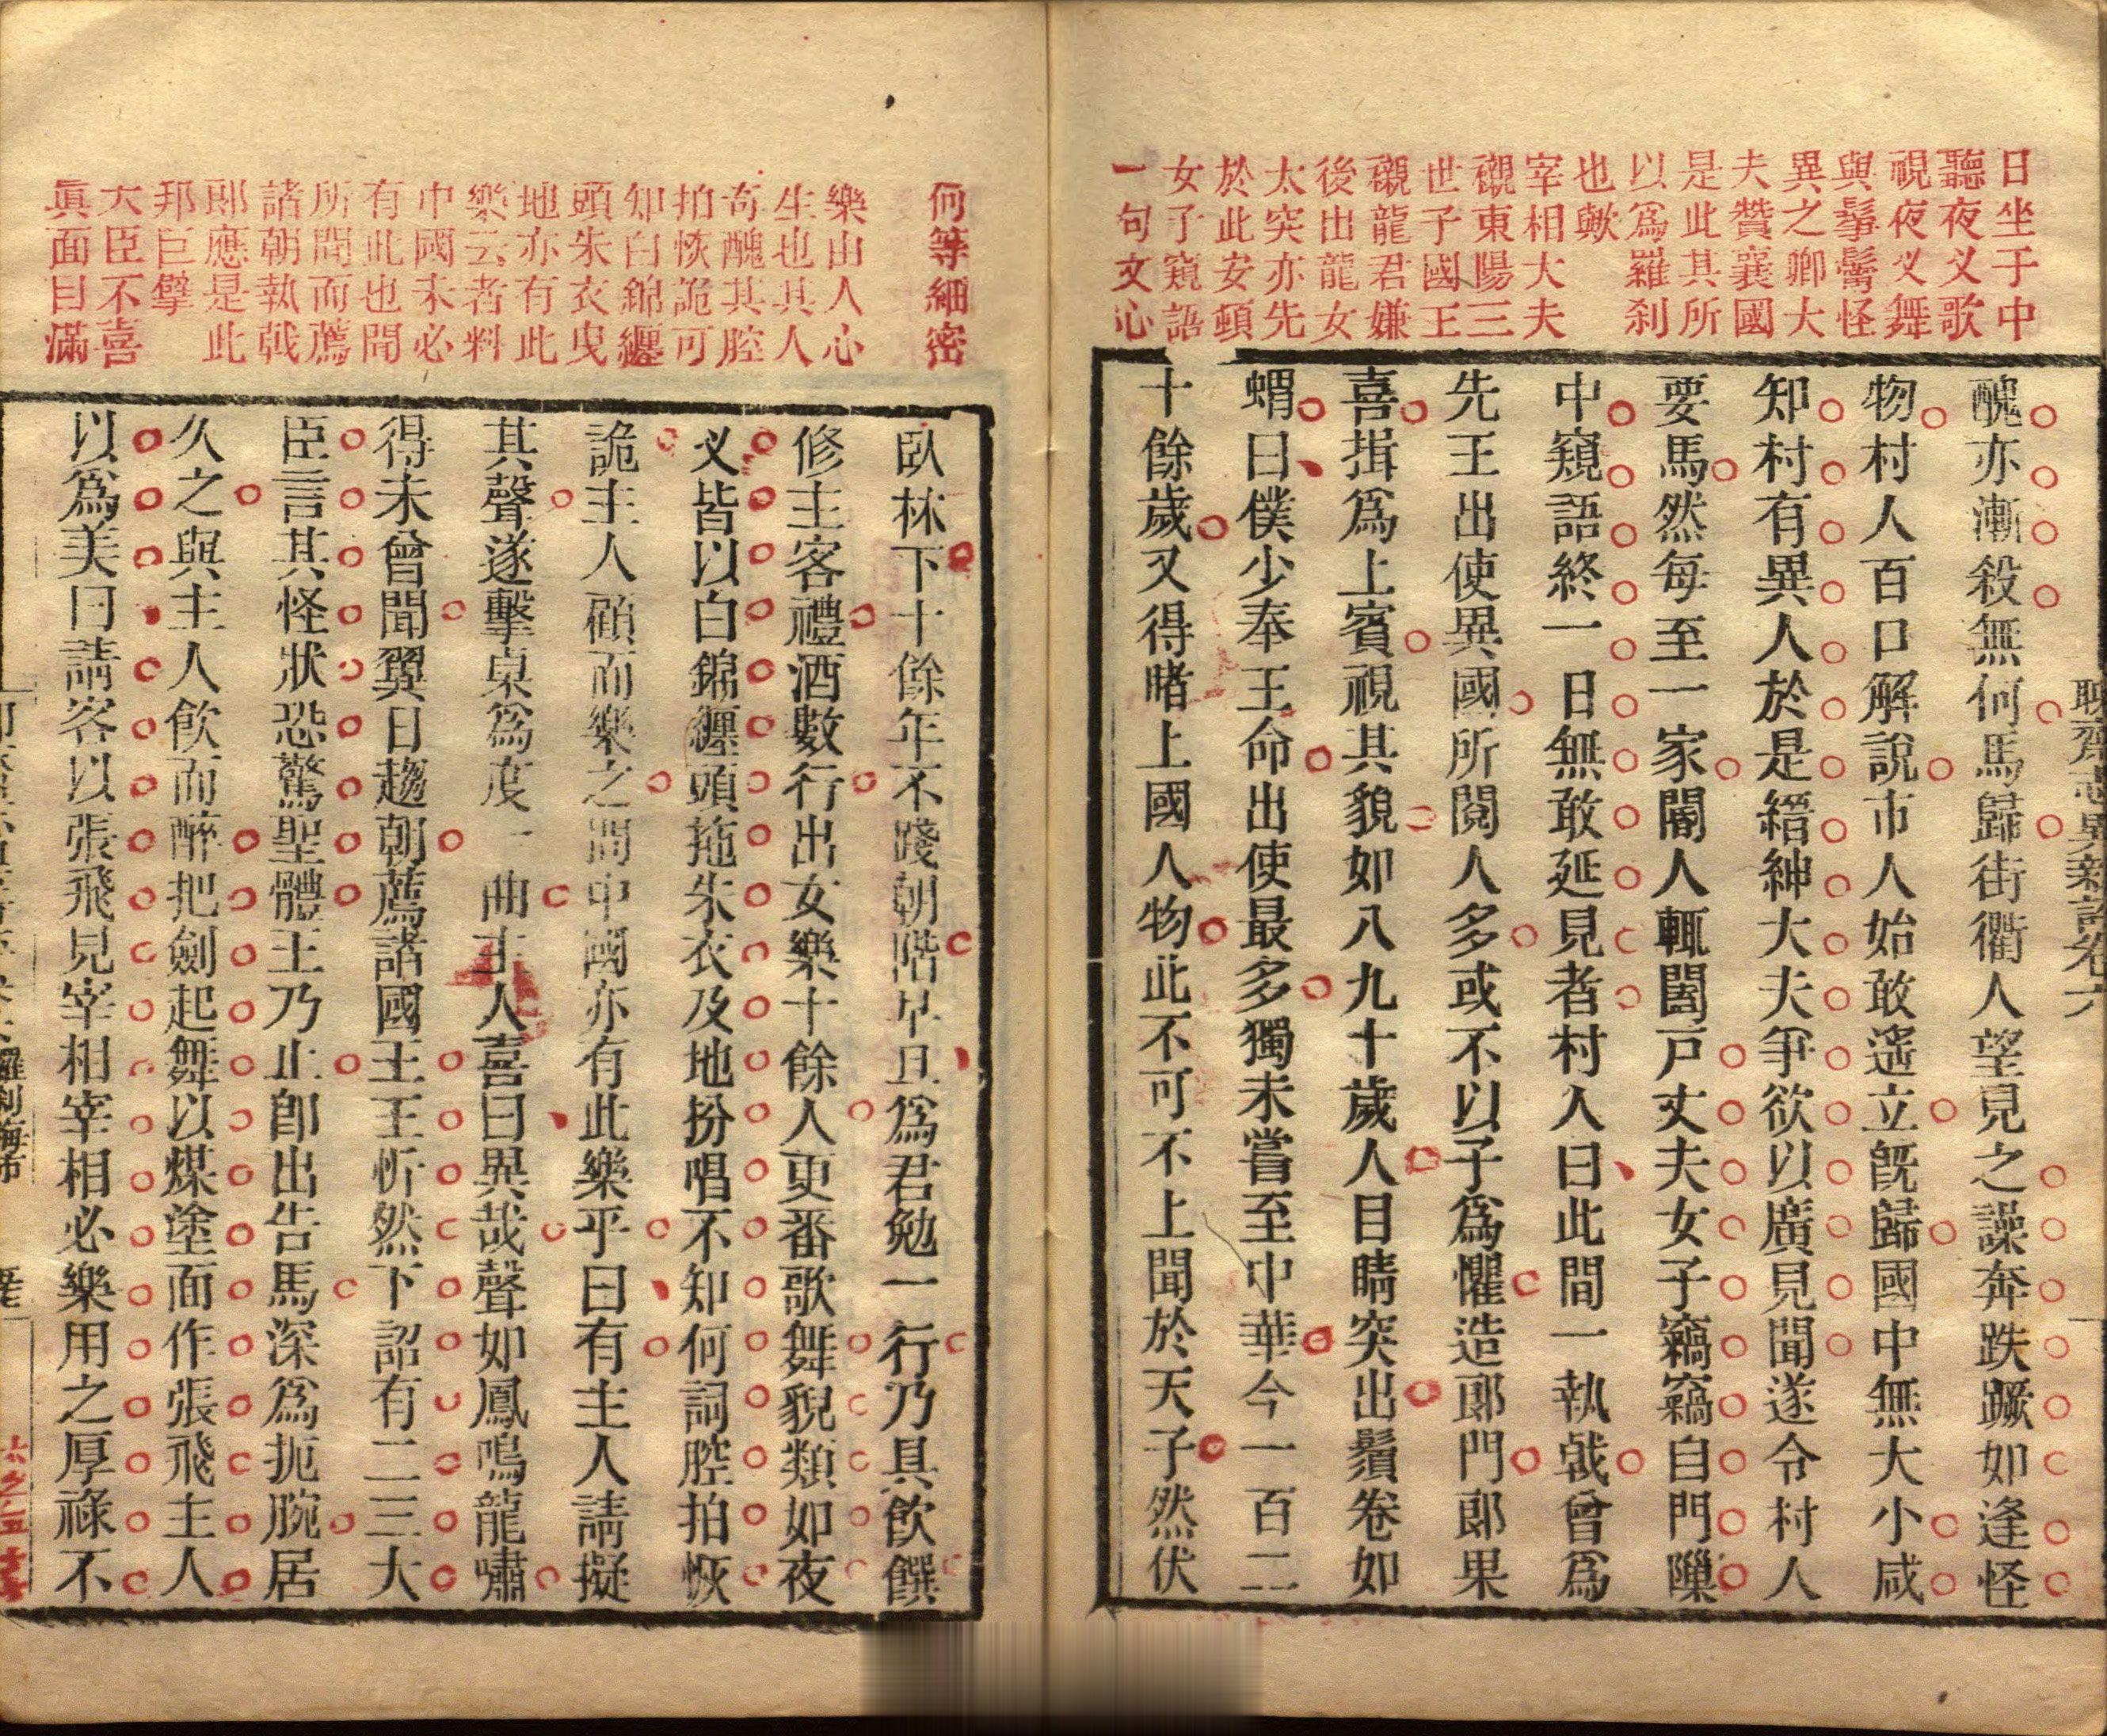 日坐于中
聽夜义歌
視夜义舞
與髩鬡怪
異之卿大
夫贊襄國
是此其所
以爲羅刹
也歟
宰相大夫
襯東陽三
世子國王
襯龍君嫌
後出龍女
太突亦先
於此安頓
女子窺語
一句文心
醜亦漸殺無何馬歸街衢人望見之譟奔跌蹶如逢怪
物村人百口解說市人始敢遙立旣歸國中無大小咸
知村有異人於是縉紳大夫爭欲以廣見聞遂令村人
要馬然每至一家閽人輒闔戸丈夫女子竊竊自門隟
中窺語終一日無敢延見者村人曰此間一執戟曾爲
先王出使異國所閱人多或不以子爲懼造郎門郎果
喜揖爲上賓視其貌如八九十歲人目睛突出鬚卷如
蝟曰僕少奉王命出使最多獨未嘗至中華今一百二
十餘歲又得睹上國人物此不可不上聞於天子然伏
聊齋志異新評卷六
何等細密
樂由人心
生也其人
奇醜其腔
拍恢詭可
知白錦纏
頭朱衣曳
地亦有此
樂云者料
中國未必
有此也聞
所聞而薦
諸朝執戟
郎應是此
邦巨擘
大臣不喜
眞面目滿
臥林下十餘年不踐朝階早旦爲君勉一行乃具飲饌
修主客禮酒數行出女樂十餘人更番歌舞貌類如夜
义皆以白錦纏頭拖朱衣及地扮唱不知何詞腔拍恢
詭主人顧而樂之問中國亦有此樂乎曰有主人請擬
其聲遂擊桌爲度一曲主人喜曰異哉聲如鳳鳴龍嘯
得未曾聞翼日趨朝薦諸國王王忻然下詔有二三大
臣言其怪狀恐驚聖體王乃止卽出告馬深爲扼腕居
久之與主人飲而醉把劍起舞以煤塗面作張飛主人
以爲美曰請客以張飛見宰相宰相必樂用之厚祿不
羅刹海市